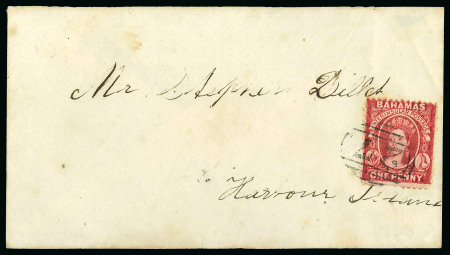 Mr Stephen Dillet
BAHAMAS
INTERINSULAR POSTAGE
ONE PENNY
Harbour Island